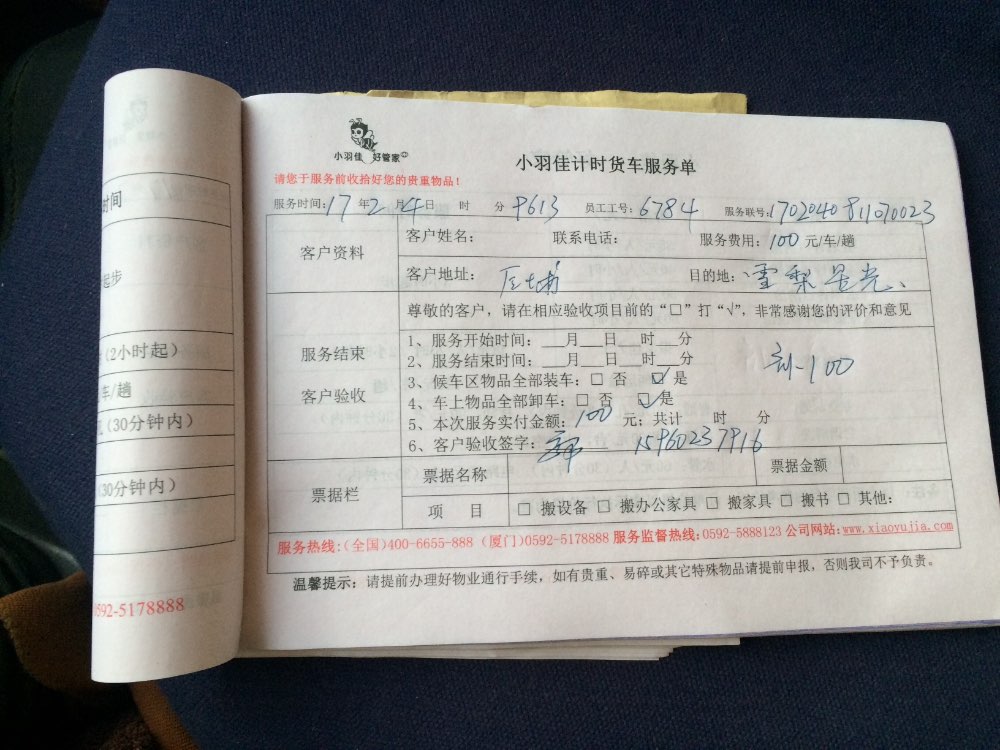 小羽佳 好管家
小羽佳计时货车服务单
请您于服务前收拾好您的贵重物品！
服务时间：17年2月4日 时 分 9613 员工工号：6784 服务联号：1702040811070023
客户资料
客户姓名： 联系电话： 服务费用：100元/车/趟
客户地址： 目的地：
尊敬的客户，请在相应验收项目前的“□”打“√”，非常感谢您的评价和意见
服务结束
客户验收
1、服务开始时间：___月___日___时___分
2、服务结束时间：___月___日___时___分
3、候车区物品全部装车：□ 否 ☑ 是
4、车上物品全部卸车：□ 否 ☑ 是
5、本次服务实付金额：100元；共计 时 分
6、客户验收签字： 15960237916
-100
票据栏
票据名称 票据金额
项 目 □ 搬设备 □ 搬办公家具 □ 搬家具 □ 搬书 □ 其他：
服务热线：(全国)400-6655-888 (厦门)0592-5178888 服务监督热线：0592-5888123 公司网站：www.xiaoyujia.com
温馨提示：请提前办理好物业通行手续，如有贵重、易碎或其它特殊物品请提前申报，否则我司不予负责。
时间
起步
(2小时起)
车/趟
(30分钟内)
(30分钟内)
0592-5178888